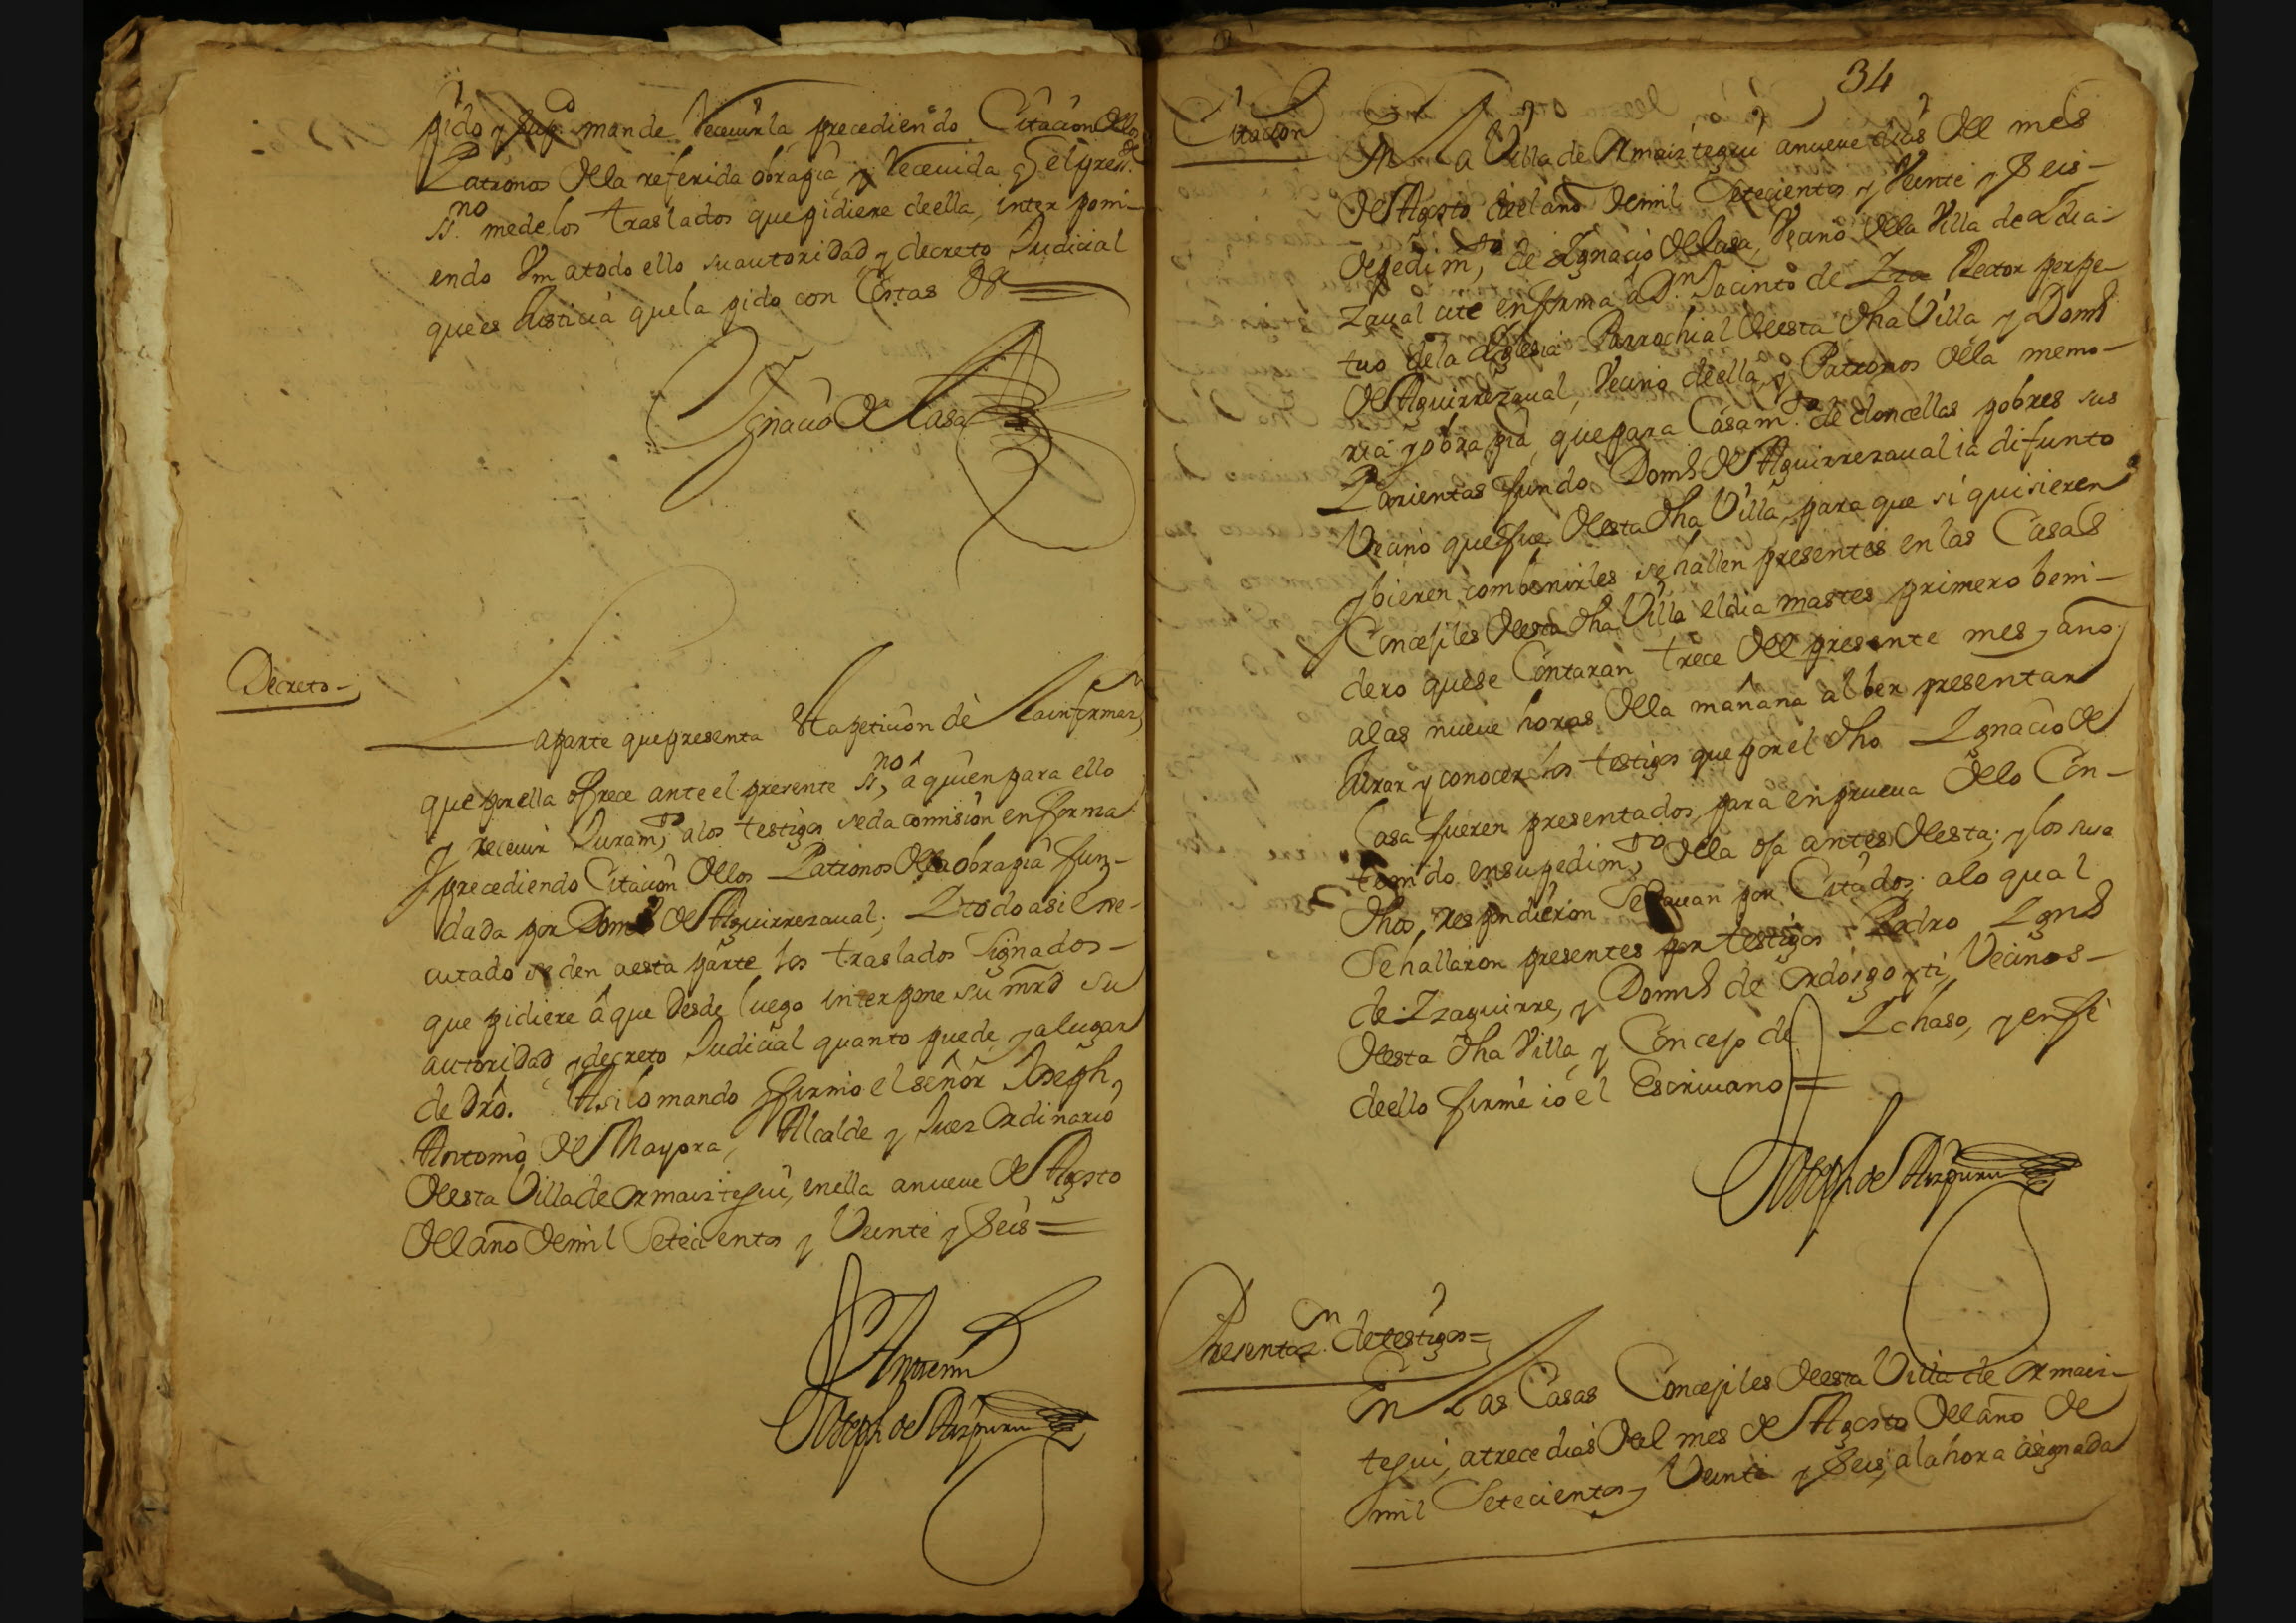 pido y supco mande Receuirla precediendo Citacion de los
Patronos de la referida obra pia y Receuida por el presste
ssno me de los traslados que pidiere de ella, interponi-
endo Vm a todo ello su autoridad y decreto Judicial
que es Justicia que la pido con Costas &a
Ignacio de Lasa
Decreto-
La parte que presenta esta peticion de la informazon
que por ella ofrece ante el presente ssno, â quien para ello
y receuir Juramto, a los testigos se da comision en forma
y precediendo Citacion de los Patronos de la obra pia fun-
dada por Domo de Aguirrezaual; y todo asi exe-
cutado se den a esta parte los traslados signados-
que pidiere â que desde luego interpone su mrd su
autoridad y decreto Judicial quanto puede, y a lugar
de dro. Asi lo mando y firmo el señor Joseph
Antonio de Mayora, Alcalde y Juez Ordinario
de esta Villa de Ormaiztegui, en ella a nueue de Agosto
del año de mil Setecientos y Veinte y Seis=
Antemi
Joseph de Aizpuru
34
Citacion
En La Villa de Ormaiztegui a nueue dias del mes
de Agosto del año de mil Setecientos y Veinte y Seis-
de pedimto, de Ignacio de Lasa, Vecino de la Villa de Ydia-
zaual cite en forma â Dn Jacinto de Rector perpe-
tuo de la Iglesia Parrochial de esta dha Villa y Domo
de Aguirrezaual, Vecino de ella, y Patronos de la memo-
ria y obra pia, que para Casamto de doncellas pobres sus
Parientas fundo Domo de Aguirrezaual ia difunto
Vecino que fue de esta dha Villa, para que si quisieren
y bieren combenirles se hallen presentes en las Casas
Concejiles de esta dha Villa el dia martes primero beni-
dero que se Contaran trece del presente mes y año
a las nueue horas de la mañana al ber presentar
Jurar y conocer los testigos que por el dho Ignacio de
Lasa fueren presentados, para en prueua de lo Con-
tenido en su pedimto, de la oja antes de esta; y los suso
dhos, respondieron Se dauan por Citados: a lo qual
Se hallaron presentes por testigos Pedro Igno
de Yzaguirre, y Domo de Ordoizgoyti, Vecinos-
de esta dha Villa, y Concejo de Ychaso, y en fe
de ello firme io el Escriuano=
Joseph de Aizpuru
Presentazn. de testigos=
En Las Casas Concejiles de esta Villa de Ormaiz-
tegui, a trece dias del mes de Agosto del año de
mil Setecientos y Veinte y Seis, a la hora asignada